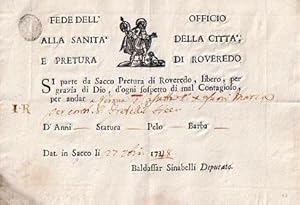 FEDE DELL' OFFICIO
ALLA SANITA' DELLA CITTA',
E PRETURA DI ROVEREDO
SI parte da Sacco Pretura di Roveredo, libero, per
grazia di Dio, d'ogni sospetto di mal Contagioso,
per andar a
I-R
D' Anni Statura Pelo Barba
Dat. in Sacco li 27 1748
Baldassar Sinabelli Deputato.